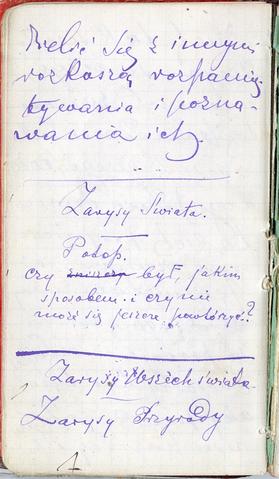 Dzielić się z innymi
rozkoszą rozpamię-
tywania i pozna-
wania ich.
Zarysy Świata.
Potop.
czy był, jakim
sposobem i czy nie
może się jeszcze powtórzyć?
Zarysy Wszechświata
Zarysy Przyrody